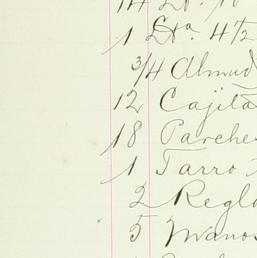 14 Lt. 10
1 Dta. 4 1/2
3/4 Almud
12 Cajita
18 Parche
1 Tarro
2 Regla
5 Manos